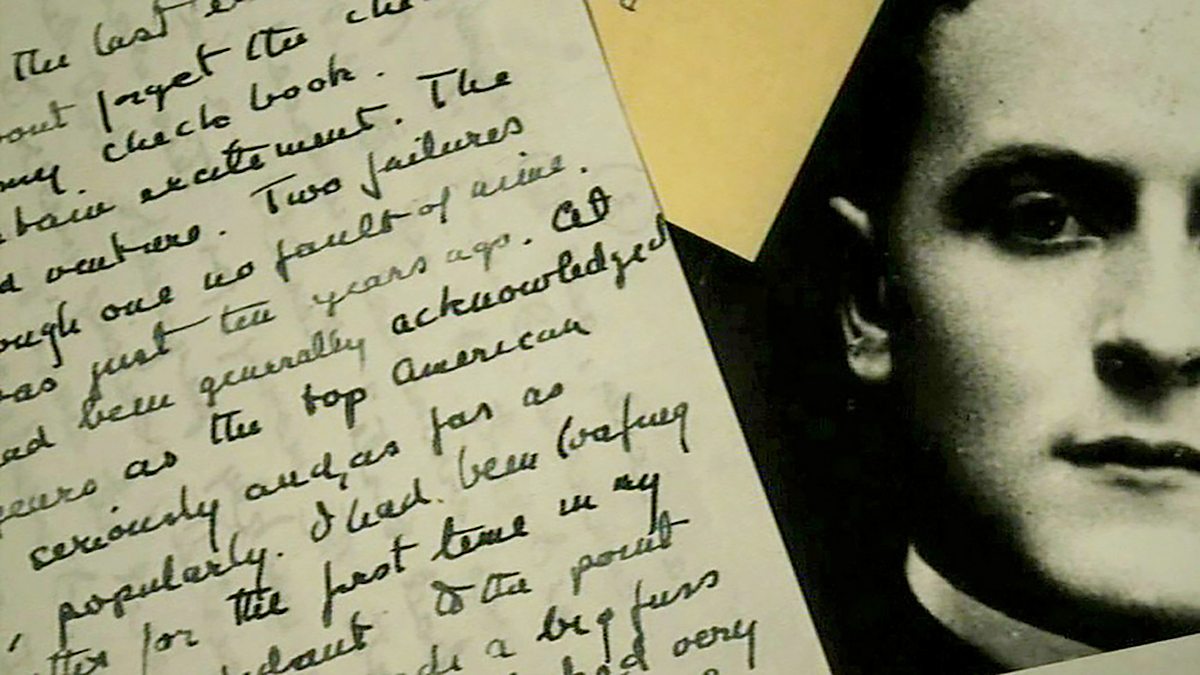 the last
forget the che
my check book.
excitement. The
ventures. Two failures
ough one no fault of mine.
as just ten years ago. At
ad been generally acknowledged
years as the top American
seriously and, as far as
popularly. I had been loafing
for the first time in my
to the point
a big fuss
had very